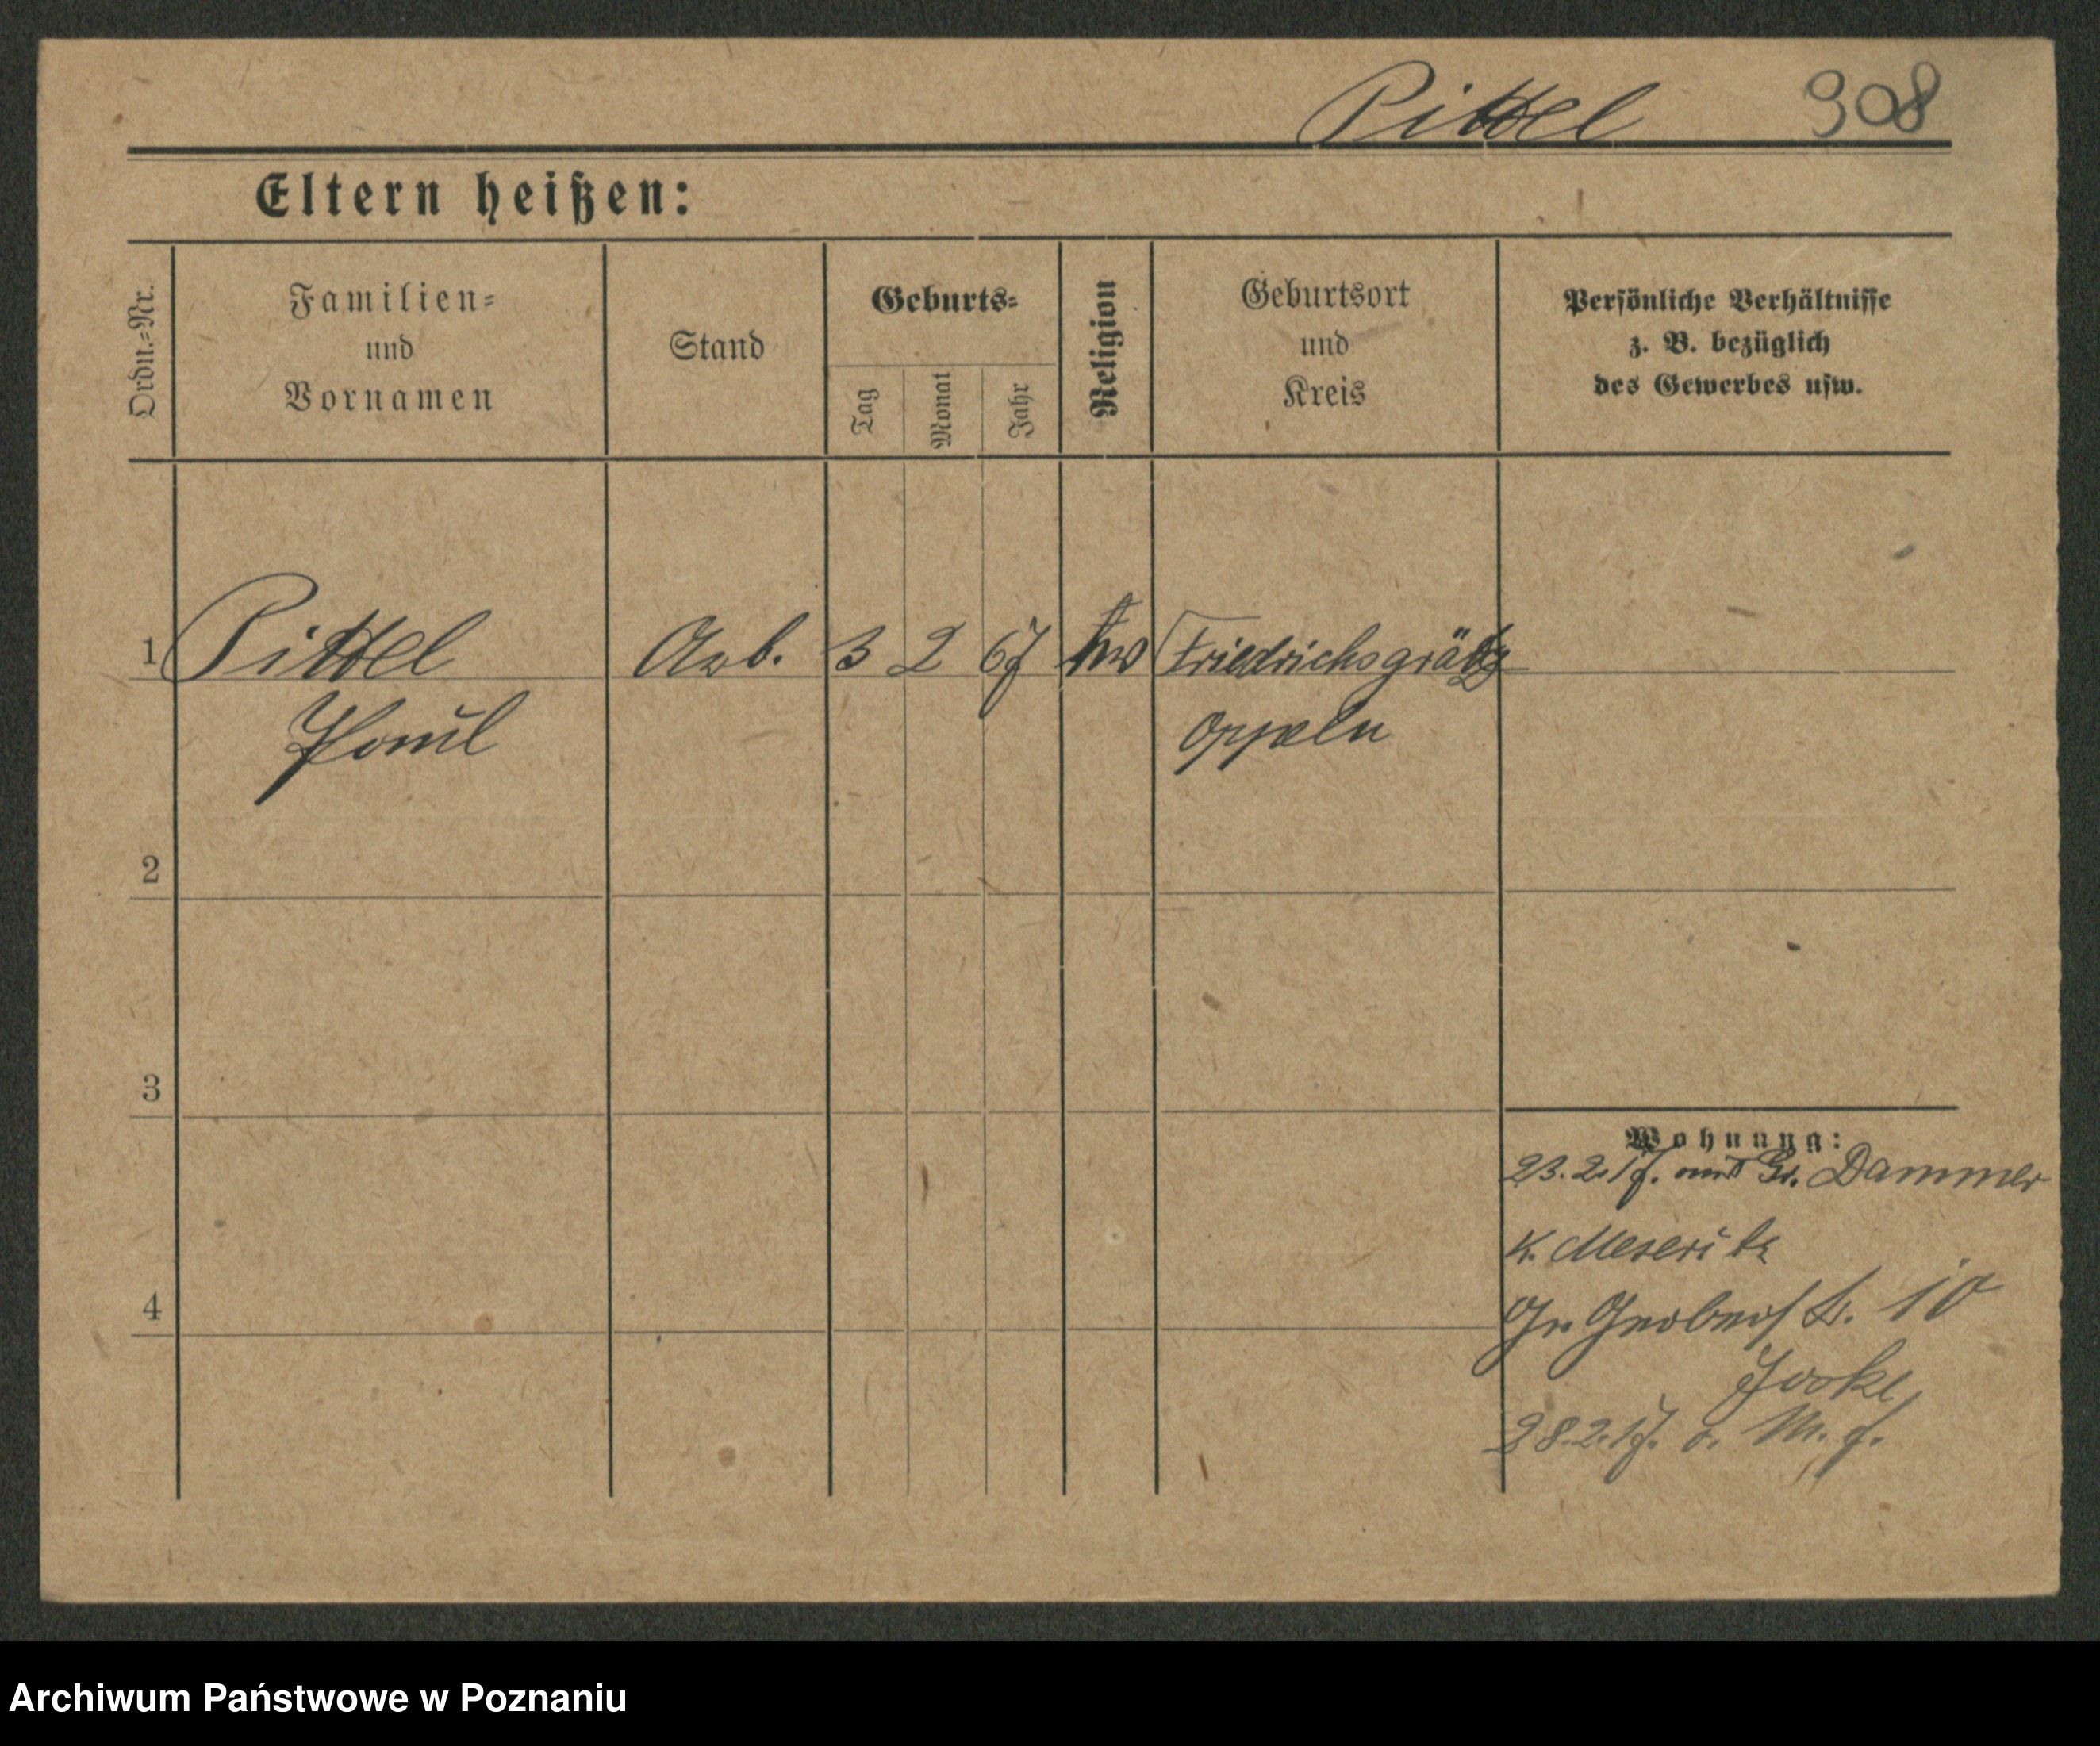 Pittel 908
Eltern heißen:
Ordn.=Nr.
Familien=
und
Vornamen
Stand
Geburts=
Tag
Monat
Jahr
Religion
Geburtsort
und
Kreis
Persönliche Verhältnisse
z. B. bezüglich
des Gewerbes usw.
1 Pittel Arb. 3 2 67 Friedrichsgrätz
Paul Oppeln
2
3
4
Wohnung:
23.2.17. Gr. Dammer
K. Meseritz
Gr. Gerberstr. 10
28.2.17.
Archiwum Państwowe w Poznaniu